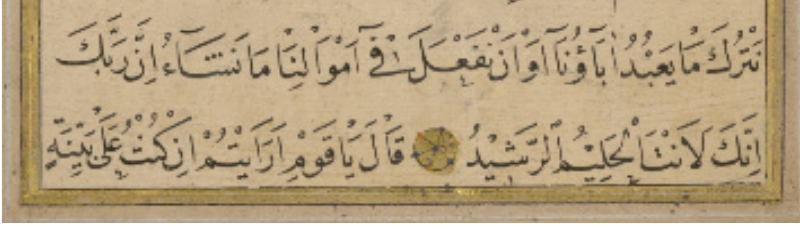 نَتْرُكَ مَا يَعْبُدُ اٰبَآؤُنَآ اَوْ اَنْ نَفْعَلَ فٖٓى اَمْوَالِنَا مَا نَشَاءُ اِنَّ رَبَّكَ
اِنَّكَ لَاَنْتَ الْحَلِيْمُ الرَّشِيْدُ قَالَ يَا قَوْمِ اَرَاَيْتُمْ اِنْ كُنْتُ عَلٰى بَيِّنَةٍ